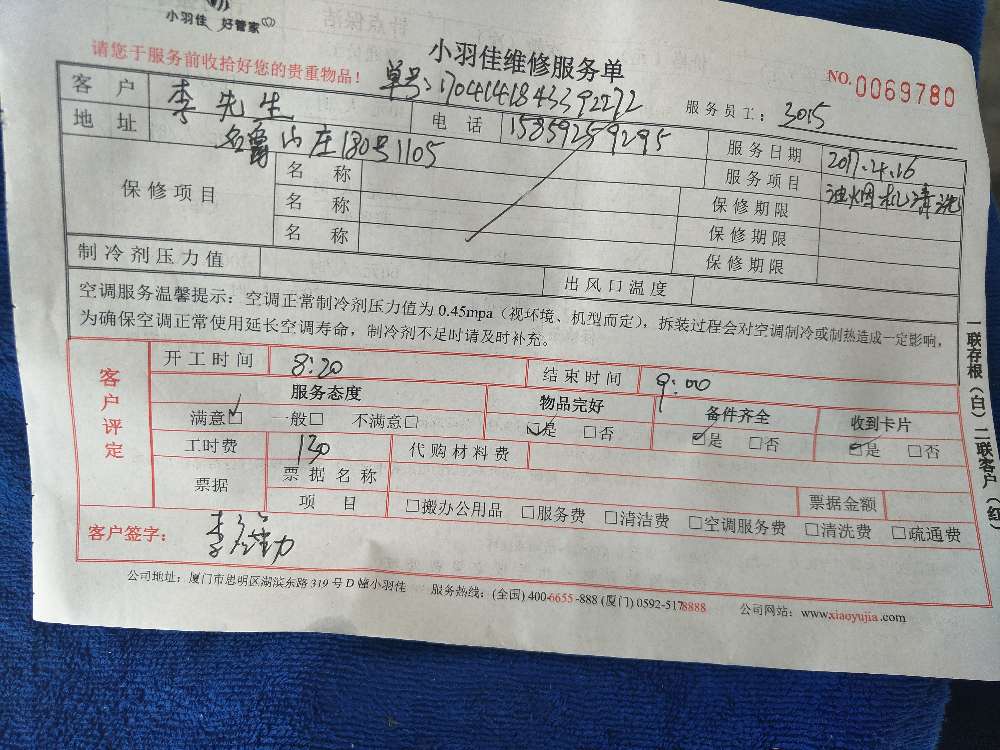 小羽佳 好管家
请您于服务前收拾好您的贵重物品！
小羽佳维修服务单
NO. 0069780
单号:1704141843392272
服务员工: 3015
客 户 李先生 电 话 15859259295 服务日期 2017.4.16
地 址 山庄180号1105 服务项目 油烟机清洗
保修项目 名 称 保修期限
名 称 保修期限
名 称 保修期限
制冷剂压力值 出风口温度
空调服务温馨提示：空调正常制冷剂压力值为 0.45mpa（视环境、机型而定），拆装过程会对空调制冷或制热造成一定影响，
为确保空调正常使用延长空调寿命，制冷剂不足时请及时补充。
客户评定
开工时间 8:20 结束时间 9:00
服务态度 物品完好 备件齐全 收到卡片
满意☑ 一般□ 不满意□ ☑是 □否 ☑是 □否 ☑是 □否
工时费 130 代购材料费
票据 票据名称 票据金额
项 目 □搬办公用品 □服务费 □清洁费 □空调服务费 □清洗费 □疏通费
客户签字: 李
公司地址：厦门市思明区湖滨东路 319 号 D 幢小羽佳 服务热线：(全国) 400-6655-888 (厦门) 0592-5178888 公司网站：www.xiaoyujia.com
一联存根（白）二联客户（红